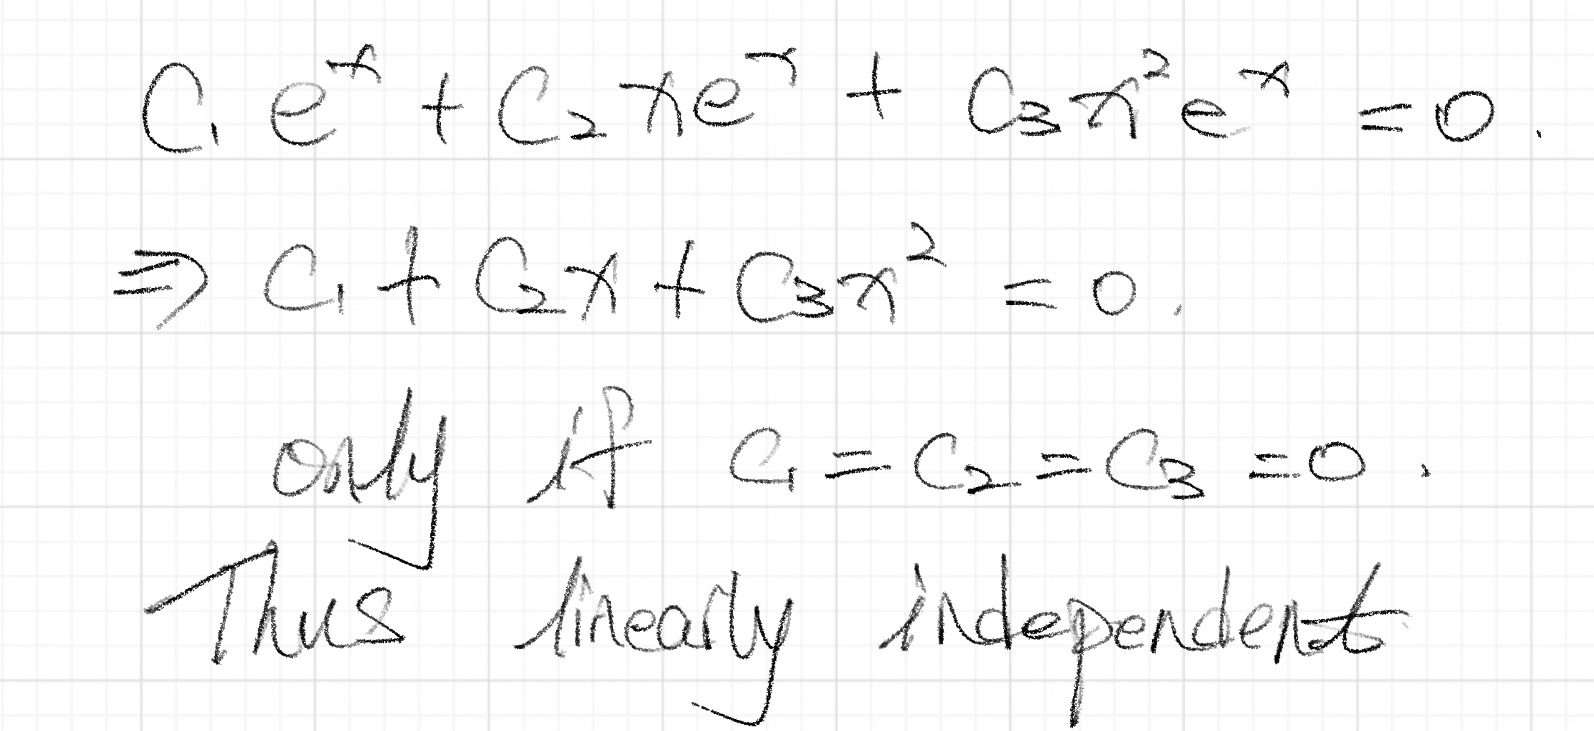 C₁eˣ + C₂xeˣ + C₃x²eˣ = 0.
⇒ C₁ + C₂x + C₃x² = 0.
only if C₁ = C₂ = C₃ = 0.
Thus linearly independent